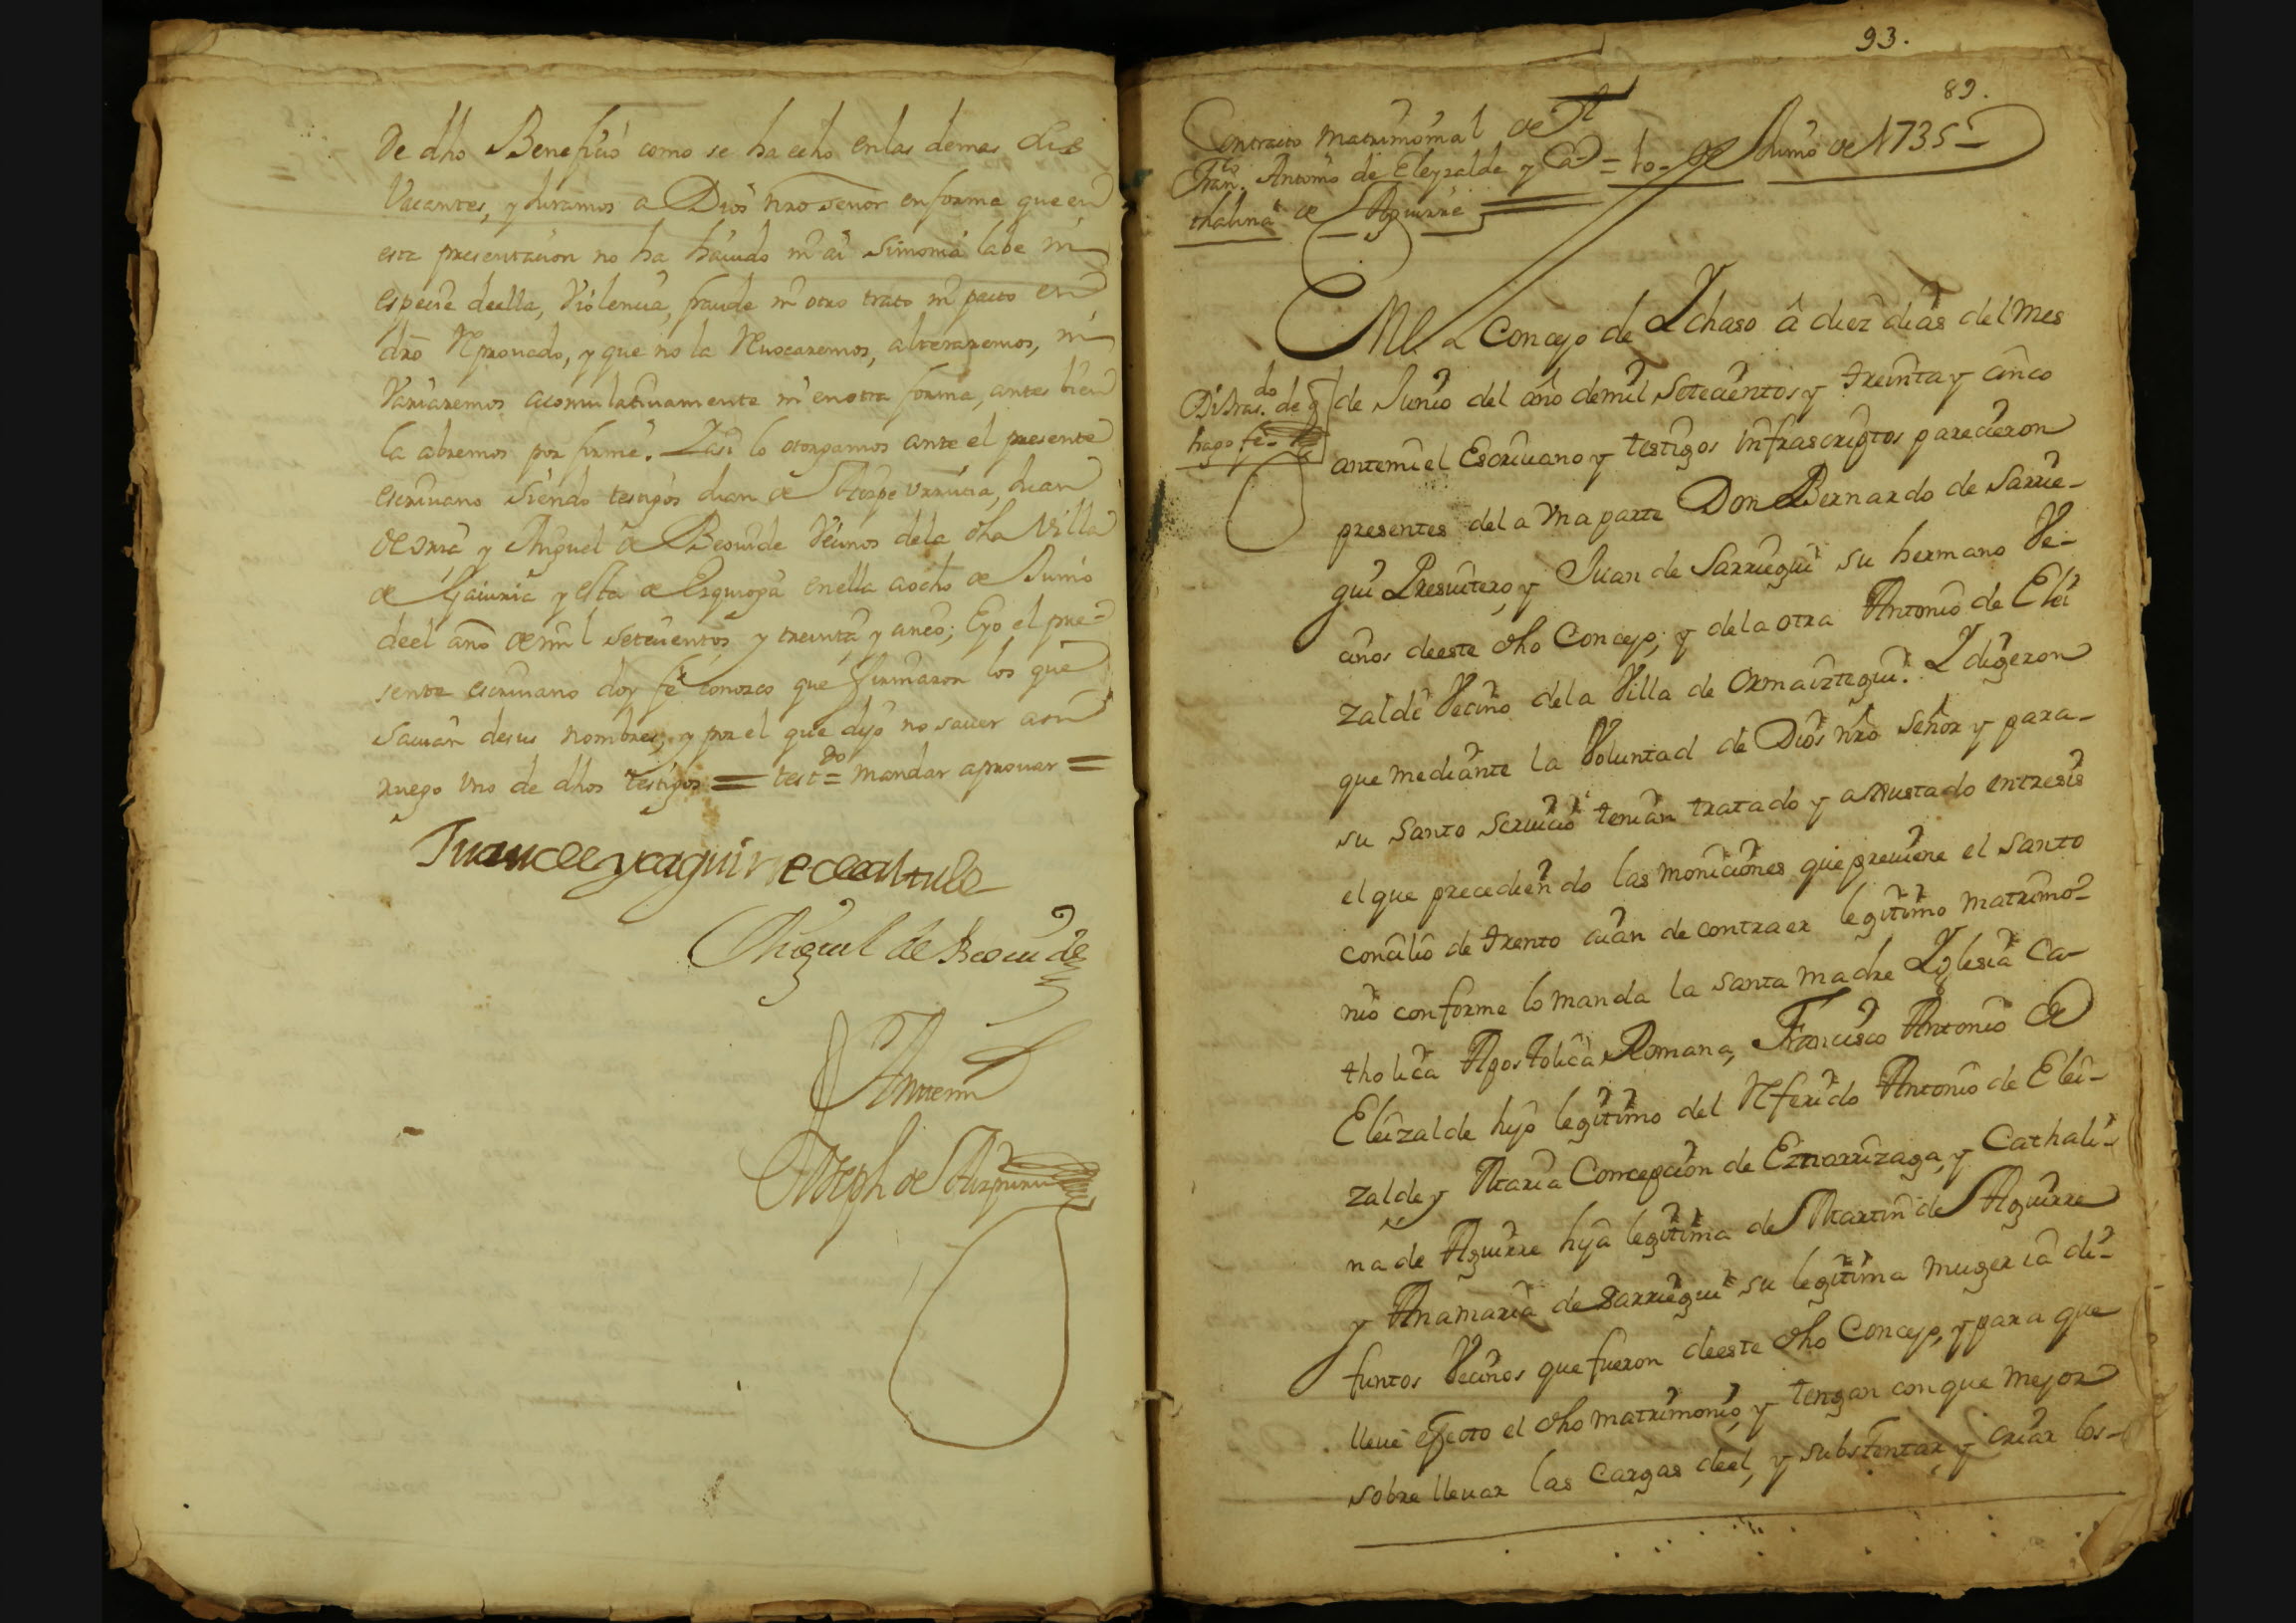 de dho Benefiçio como se ha echo en las demas
Vacantes, y Juramos a Dios nro señor en forma que en
esta presentaçion no ha hauido ni ai Simonia labe ni
espeçie de ella, Violençia, fraude ni otro trato ni pacto en
dro Reprouado, y que no la Reuocaremos, alteraremos, ni
Variaremos acomulatiuamente ni en otra forma, antes bien
la abremos por firme. Y asi lo otorgamos ante el presente
escriuano siendo testigos Juan de Urruçia, Juan
de y Miguel de Beouide Veçinos de la dha Villa
de Gaiuria y esta de Ezquioga en ella a ocho de Junio
de el año de mill seteçientos y treinta y çinco; E yo el pre-
sente escriuano doy fe conozco que firmaron los que
sauian de sus nombres, y por el que dijo no sauer a su
ruego Vno de dhos testigos = testdo = mandar aprouar =
Juan de
Miguel de Beouide
Ante mi
Joseph de
93.
89.
Contrato Matrimonial de
Franco. Antonio de Eleyzalde y Ca- = 10 de Junio de 1735 =
thalina de Aguirre
En el Concejo de Ychaso â diez dias del Mes
de Junio del año de mil Seteçientos y treinta y çinco
do
de q
hago fe -
ante mi el Escriuano y testigos infrascriptos pareçieron
presentes de la Vna parte Don Bernardo de Sarrie-
gui Presuitero, y Juan de Sarriegui su hermano Ve-
çinos de este dho Concejo; y de la otra Antonio de Elei
zalde Veçino de la Villa de Ormaiztegui. Y digeron
que mediante la Voluntad de Dios nro Señor y para-
su Santo Seruiçio tenian tratado y ajustado entre sis
el que precediendo las moniçiones que preuiene el Santo
Conçilio de trento aian de contraer legitimo Matrimo-
nio conforme lo manda la Santa Madre Yglesia Ca-
tholica Apostolica Romana, Françisco Antonio de
Eleizalde hijo legitimo del Referido Antonio de Elei-
zalde y Maria Concepçion de Eznarrizaga, y Cathali-
na de Aguirre hija legitima de Martin de Aguirre
y Ana maria de Sarriegui su legitima muger ia di-
funtos Veçinos que fueron de este dho Concejo, y para que
lleue efecto el dho matrimonio, y tengan con que mejor
sobre lleuar las Cargas de el, y substentar y criar los-